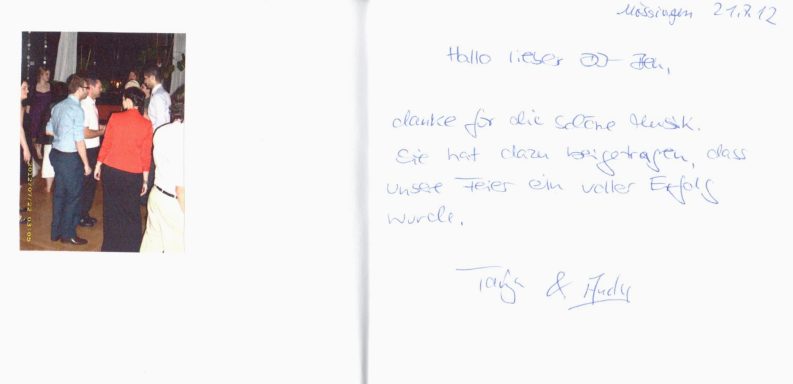 Mössingen 21.7.12
Hallo lieber DJ
danke für die schöne Musik.
Sie hat dazu beigetragen, dass
unsere Feier ein voller Erfolg
wurde.
Tanja & Andy
2012/07/22 03:05